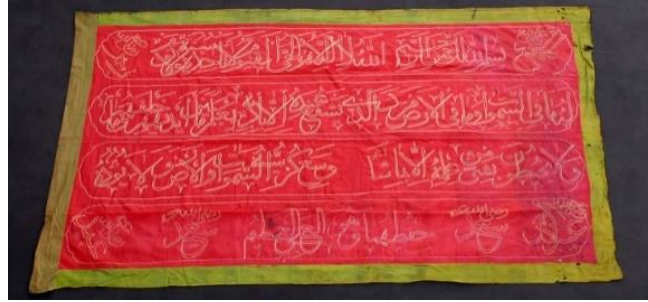 بسم الله الرحمن الرحيم الله لا اله الا هو الحي القيوم لا تاخذه سنة ولا نوم
له ما في السموات وما في الارض من ذا الذي يشفع عنده الا باذنه يعلم ما بين ايديهم وما خلفهم
ولا يحيطون بشيء من علمه الا بما شاء وسع كرسيه السموات والارض ولا يؤده
حفظهما وهو العلي العظيم